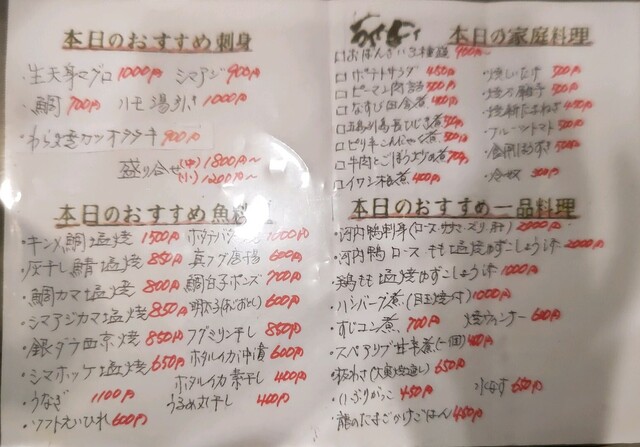 本日のおすすめ刺身
・生天身マグロ 1000円 シマアジ 900円
・鯛 700円 ハモ湯引き 1000円
・わら焼カツオタタキ 900円
盛り合せ(中) 1800円〜
(小) 1200円〜
本日のおすすめ魚料理
・キンメ鯛塩焼 1500円 ホタテバター 1000円
・灰干し鯖塩焼 850円 真フグ唐揚 600円
・鯛カマ塩焼 800円 鯛白子ポンズ 700円
・シマアジカマ塩焼 850円 明太子 600円
・銀ダラ西京焼 850円 フグミリン干し 850円
・シマホッケ塩焼 650円 ホタルイカ沖漬 600円
・うなぎ 1100円 ホタルイカ素干し 400円
・ソフトえいひれ 600円 うるめ丸干し 400円
本日の家庭料理
□おばんざい3種盛 900円〜
□ポテトサラダ 450円 ・焼しいたけ 500円
□ピーマン肉詰 500円 ・焼万願寺 500円
□なすび田舎煮 400円 ・焼新たまねぎ 450円
□五島列島長ひじき煮 500円 ・フルーツトマト 500円
□ピリ辛こんにゃく煮 500円
□牛肉とごぼう煮 700円 ・冷奴 300円
□イワシ梅煮 400円
本日のおすすめ一品料理
・河内鴨刺身(ロース・ササミ・ズリ・肝) 2000円
・河内鴨ロースもも塩焼ゆずこしょう添 2000円
・鶏もも塩焼ゆずこしょう添 1000円
・ハンバーグ煮(目玉焼付) 1000円
・すじコン煮 700円 焼ウィンナー 600円
・スペアリブ甘辛煮(一個) 400円
・板わさ 650円
・いぶりがっこ 450円 水なす 650円
・龍のたまごかけごはん 450円